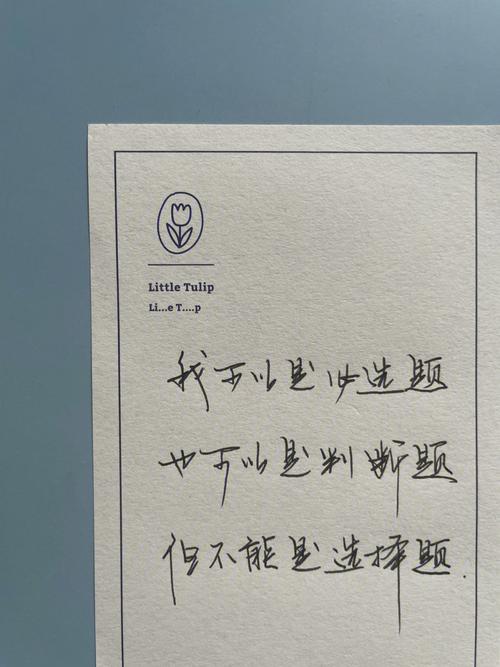 Little Tulip
Li...e T....p
我可以是必选题
也可以是判断题
但不能是选择题.